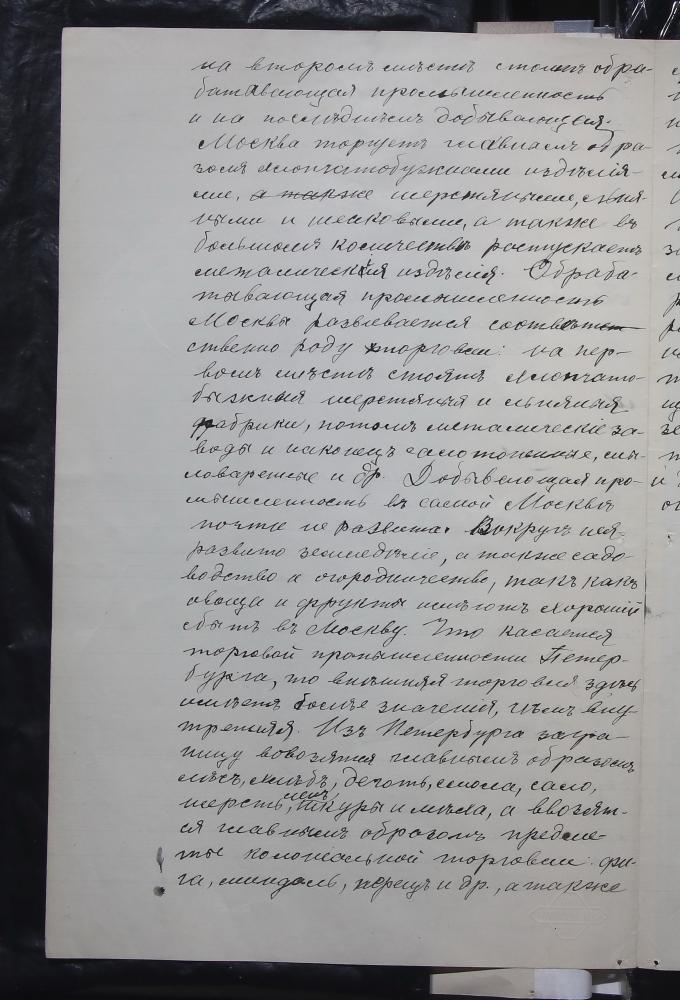 на второмъ мѣстѣ стоитъ обра-
батывающая промышленность
и на послѣднемъ добывающая.
Москва торгуетъ главнымъ обра-
зомъ хлопчатобумжными издѣлія-
ми, а также шерстяными, льня-
ными и шелковыми, а также въ
большомъ количествѣ роспускаетъ
металическія издѣлія. Обраба-
тывающая промышленность
Москвы развивается соотвѣтст-
ственно роду торговли: на пер-
вомъ мѣстѣ стоятъ хлопчато-
бужныя шерстяныя и льняныя
фабрики, потомъ металическіе за-
воды и наконецъ салотопенные, мы-
ловаренные и др. Добывающая про-
мышленность въ самой Москвѣ
почти не развита. Вокругъ нея
развито земледѣліе, а также садо-
водство и огородничество, такъ какъ
овощи и фрукты имѣютъ хорошій
сбытъ въ Москву. Что касается
торговой промышленности Петер-
бурга, то внѣшняя торговля здѣсь
имѣетъ болѣе значенія, чѣмъ вну-
тренняя. Изъ Петербурга загра-
ницу вовозятся главнымъ образомъ
лѣсъ, хлѣбъ, деготь, смола, сало,
шерсть, ленъ, шкуры и мѣха, а ввозят-
ся главнымъ образомъ предме-
ты колоніальной торговли: фи-
га, миндаль, перецъ и др., а также